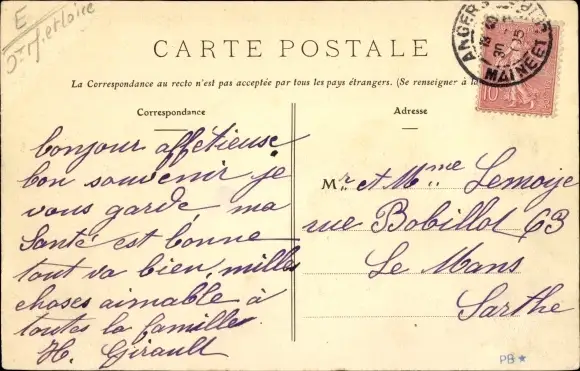 E
Mt et Loire
CARTE POSTALE
La Correspondance au recto n'est pas acceptée par tous les pays étrangers. (Se renseigner à la
Correspondance
bonjour affétieuse
bon souvenir je
vous garde, ma
Santé est bonne
tout va bien, milles
choses aimable à
toutes la famille
H. Girault
Adresse
Mr. et Mme Lemoije
rue Bobillot 63
Le Mans
Sarthe
ANGERS
MAINE ET
30
05
10
PB